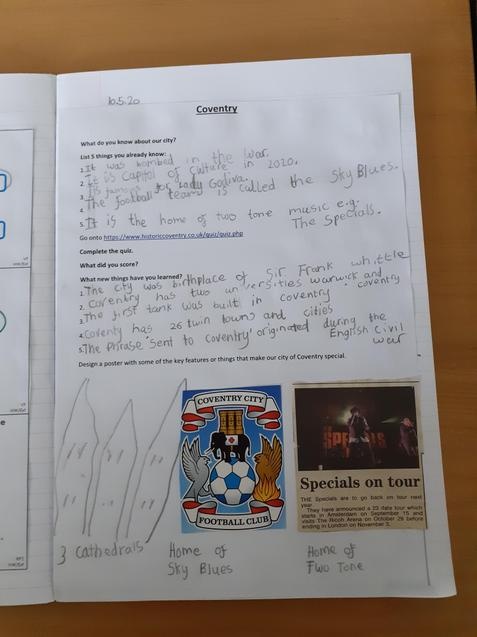 10.5.20
Coventry
What do you know about our city?
List 5 things you already know:
1. It was bombed in the war.
2. It is capitol of culture in 2020.
3. Its famous for Lady Godiva.
4. The football team is called the Sky Blues.
5. It is the home of two tone music e.g.
The Specials.
Go onto https://www.historiccoventry.co.uk/quiz/quiz.php
Complete the quiz.
What did you score?
What new things have you learned?
1. The city was birthplace of Sir Frank whittle
2. Coventry has two universities warwick and coventry
3. The first tank was built in coventry
4. Coventy has 26 twin towns and cities
5. The phrase 'sent to Coventry' originated during the
English civil war
Design a poster with some of the key features or things that make our city of Coventry special.
COVENTRY CITY
FOOTBALL CLUB
SPECIALS
Specials on tour
THE Specials are to go back on tour next
year.
They have announced a 23 date tour which
starts in Amsterdam on September 15 and
visits The Ricoh Arena on October 29 before
ending in London on November 3.
3 Cathedrals
Home of
Sky Blues
Home of
Two Tone